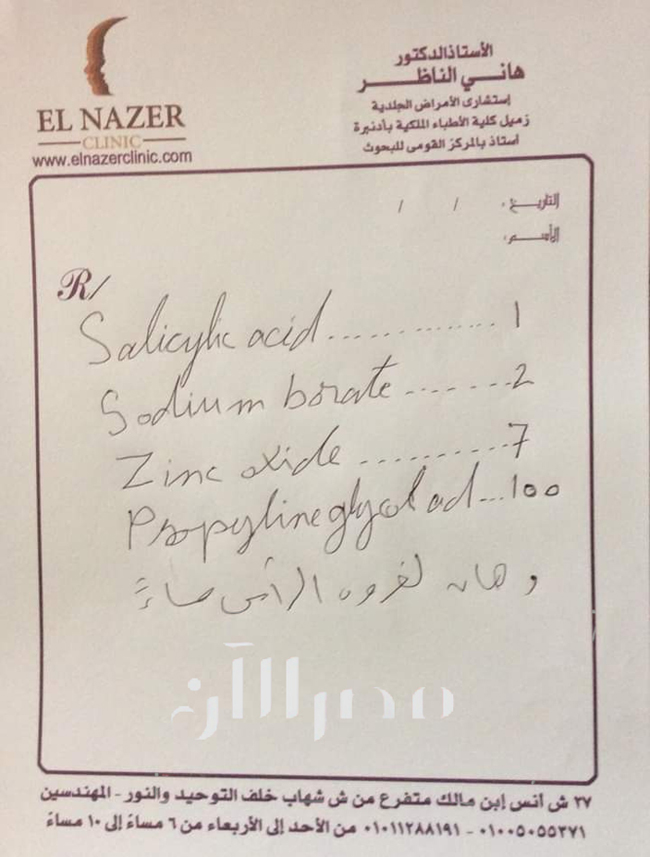 EL NAZER
CLINIC
www.elnazerclinic.com
الأستاذ الدكتور
هاني الناظر
إستشارى الأمراض الجلدية
زميل كلية الأطباء الملكية بأدنبرة
أستاذ بالمركز القومى للبحوث
التاريخ: / /
الأسم:
R/
Salicylic acid ............. 1
Sodium borate ....... 2
Zinc oxide .......... 7
Propylineglycol ad ... 100
دهان لفروه الرأس مساءً
مصر الآن
٢٧ ش أنس إبن مالك متفرع من ش شهاب خلف التوحيد والنور - المهندسين
٠١٠٠٥٠٥٥٢٧١ - ٠١٠١١٢٨٨١٩١ من الأحد إلى الأربعاء من ٦ مساءً إلى ١٠ مساءً